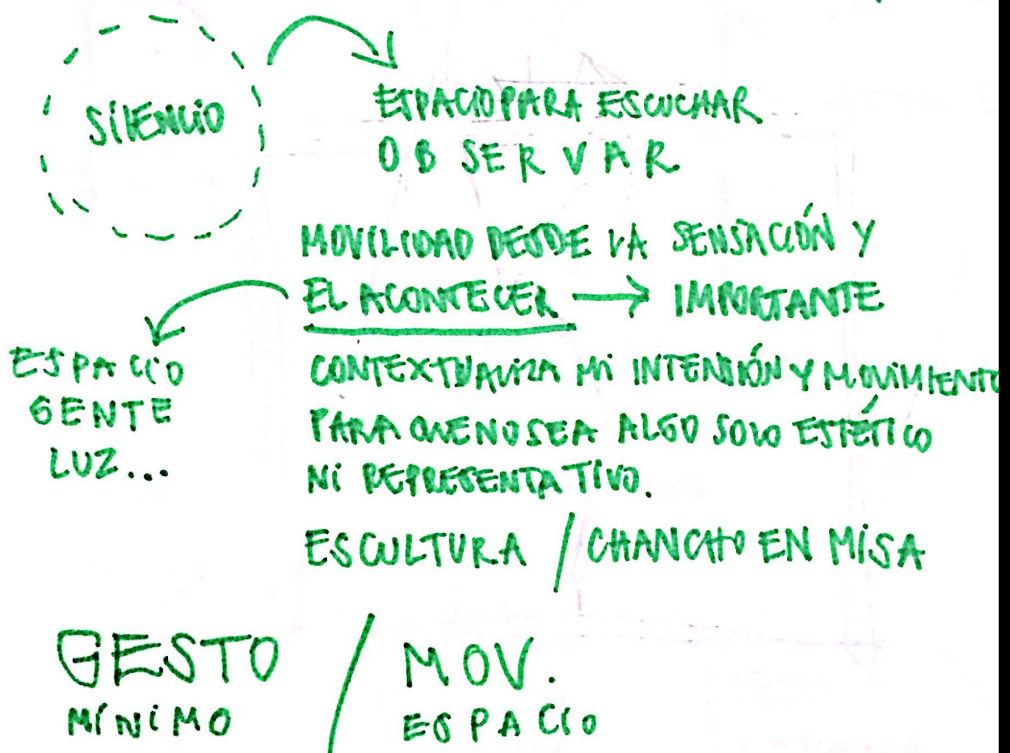 SILENCIO
ESPACIO PARA ESCUCHAR
OBSERVAR
MOVILIDAD DESDE LA SENSACIÓN Y
EL ACONTECER → IMPORTANTE
ESPACIO
GENTE
LUZ...
CONTEXTUALIZA MI INTENCIÓN Y MOVIMIENTO
PARA QUE NO SEA ALGO SOLO ESTÉTICO
NI REPRESENTATIVO.
ESCULTURA / CHANCHO EN MISA
GESTO / MOV.
MÍNIMO ESPACIO